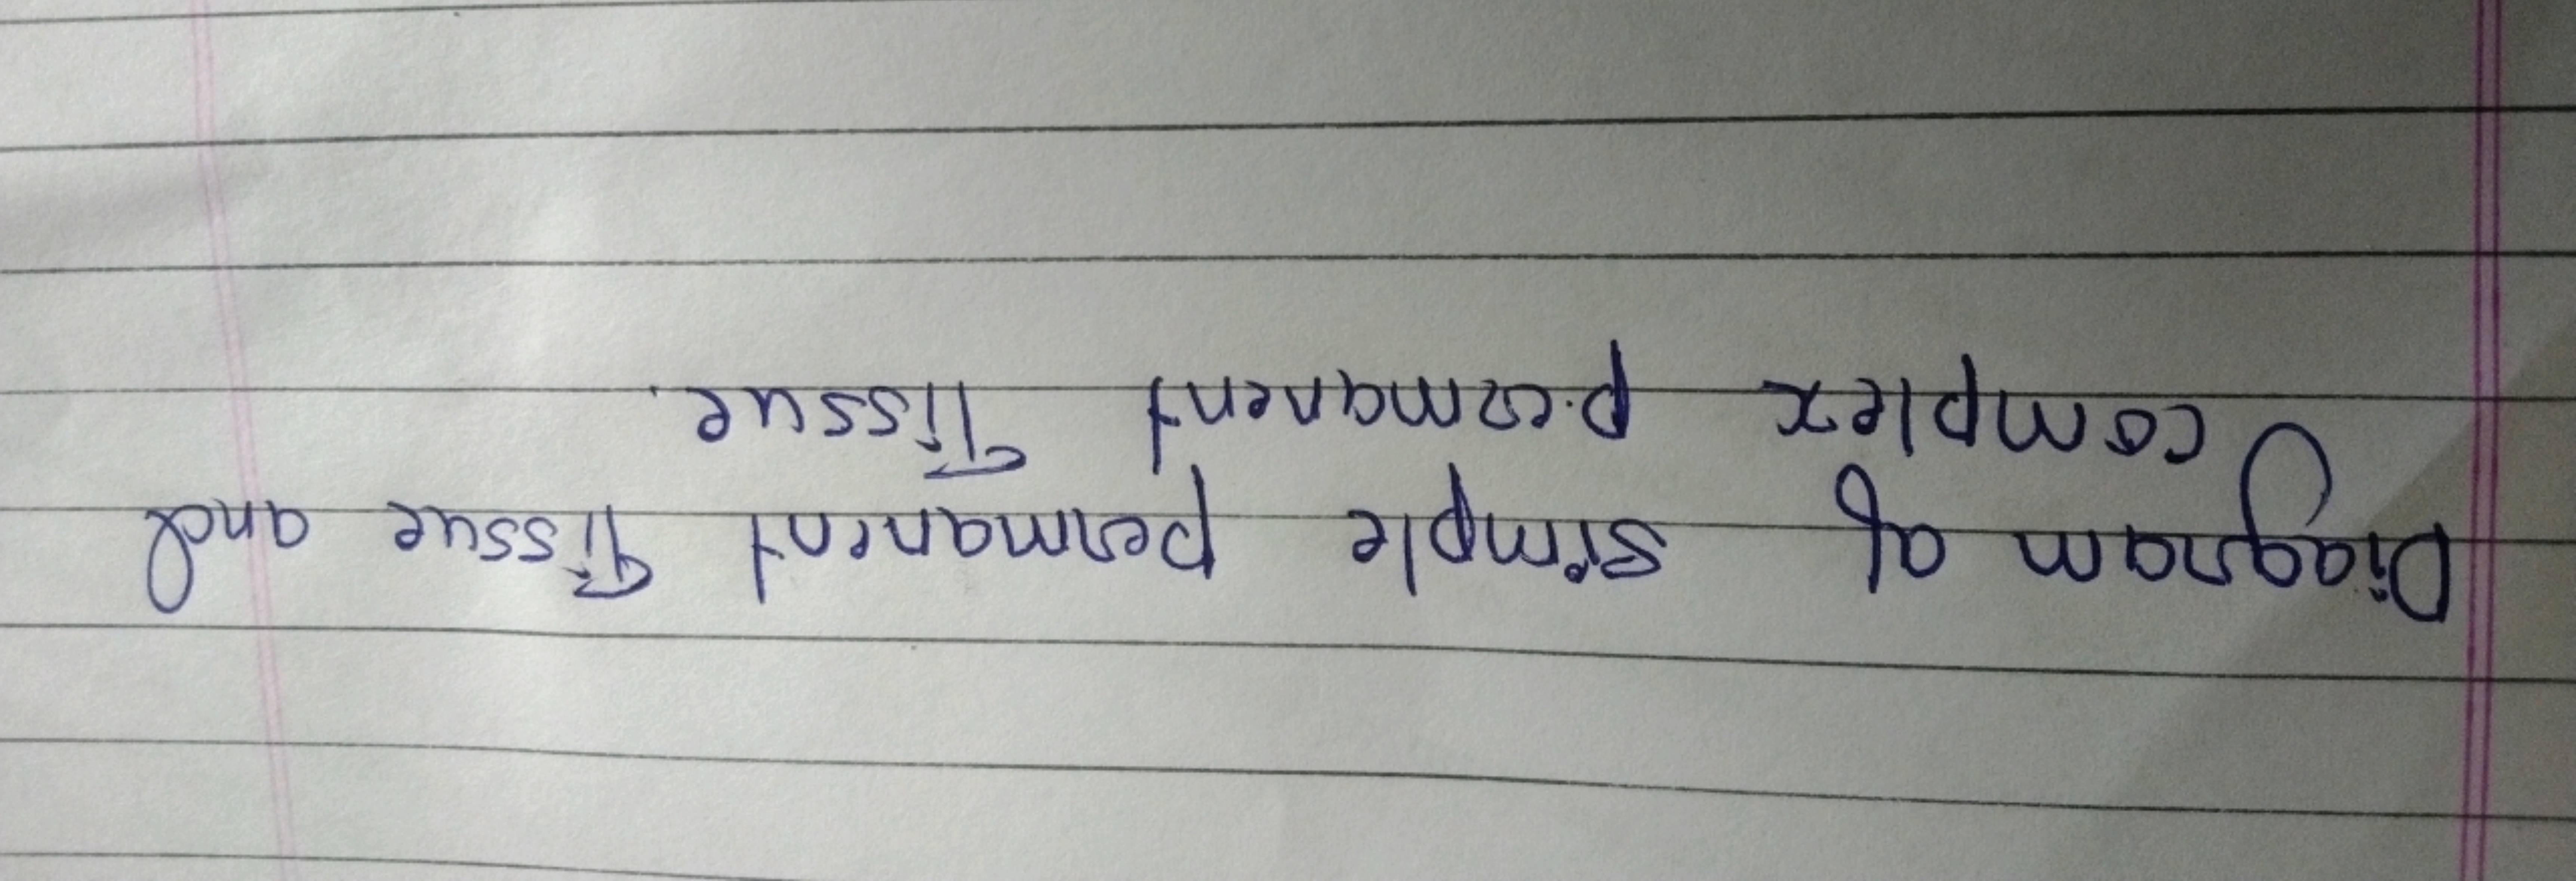 Diagram of simple permanent Tissue and
complex permanent Tissue.